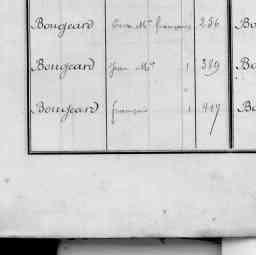 Bougeard Mie françoise 256 Bo
Bougeard Jean Mie 1 389 Bo
Bougeard françois 1 417 Bo